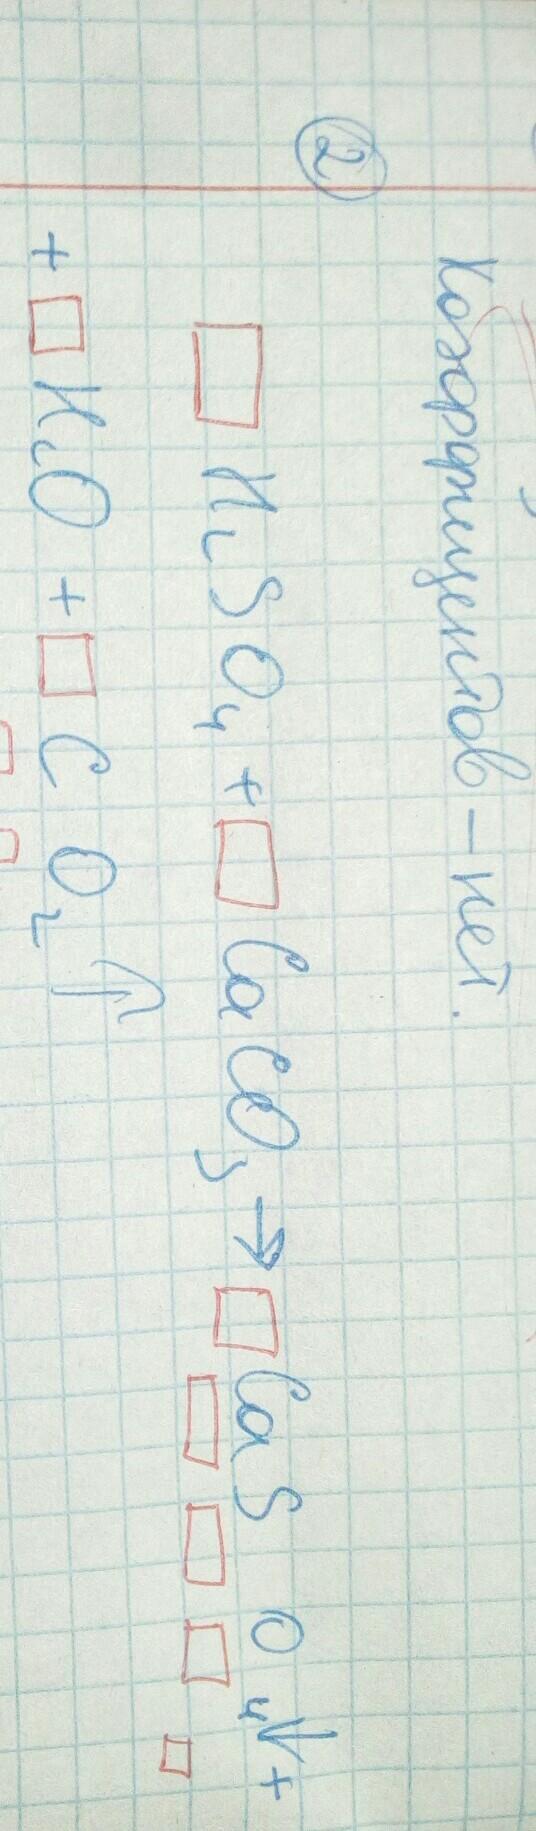 Коэффициентов – нет.
② □ H₂SO₄ + □ CaCO₃ → □ CaSO₄↓ +
+ □ H₂O + □ CO₂↑